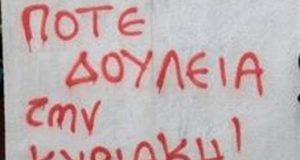 ΠΟΤΕ
ΔΟΥΛΕΙΑ
στην
ΚΥΡΙΑΚΗ!